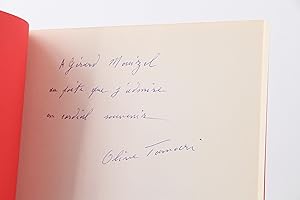 A Gérard Mourgue
un poète que j'admire
en cordial souvenir
Olive Tamari